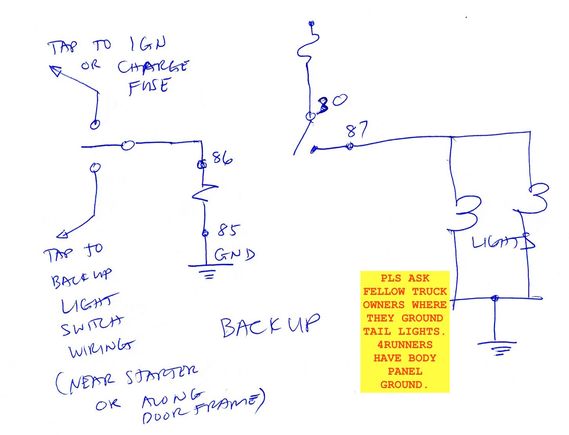 TAP TO IGN
OR CHARGE
FUSE
30
87
86
85
GND
TAP TO
BACKUP
LIGHT
SWITCH
WIRINGS
(NEAR STARTER
OR ALONG
DOOR FRAME)
BACKUP
LIGHTS
PLS ASK
FELLOW TRUCK
OWNERS WHERE
THEY GROUND
TAIL LIGHTS.
4RUNNERS
HAVE BODY
PANEL
GROUND.